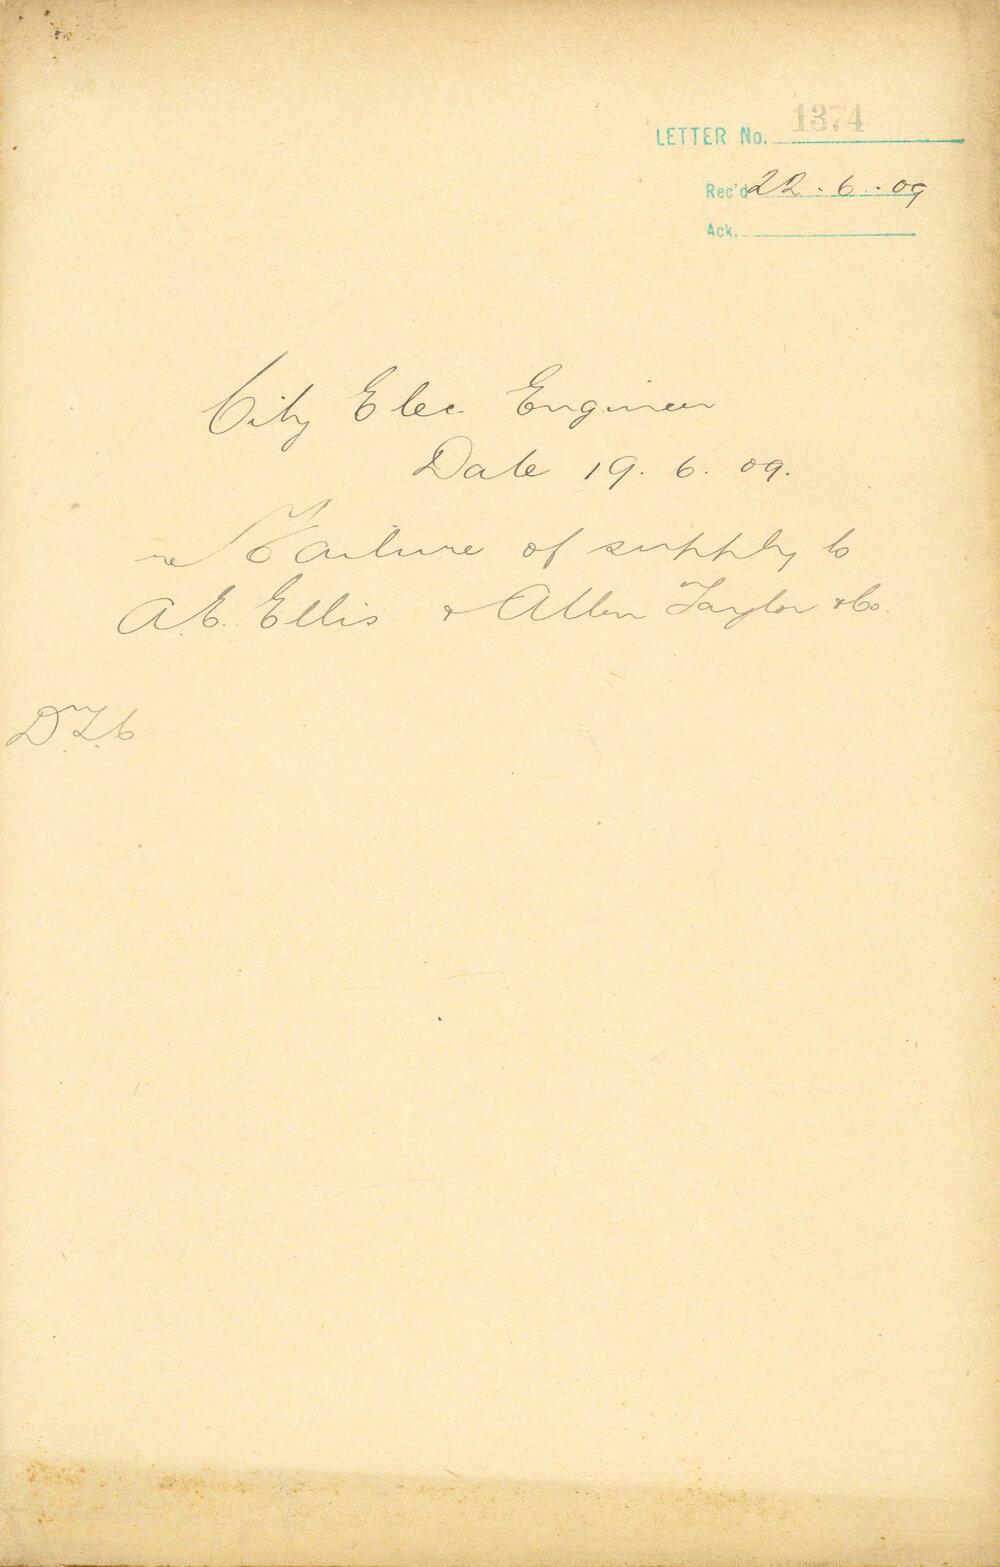 LETTER No. 1374
Rec'd 22.6.09
Ack.
City Elec. Engineer
Date 19.6.09.
re Failure of supply to
A.E. Ellis & Allen Taylor & Co.